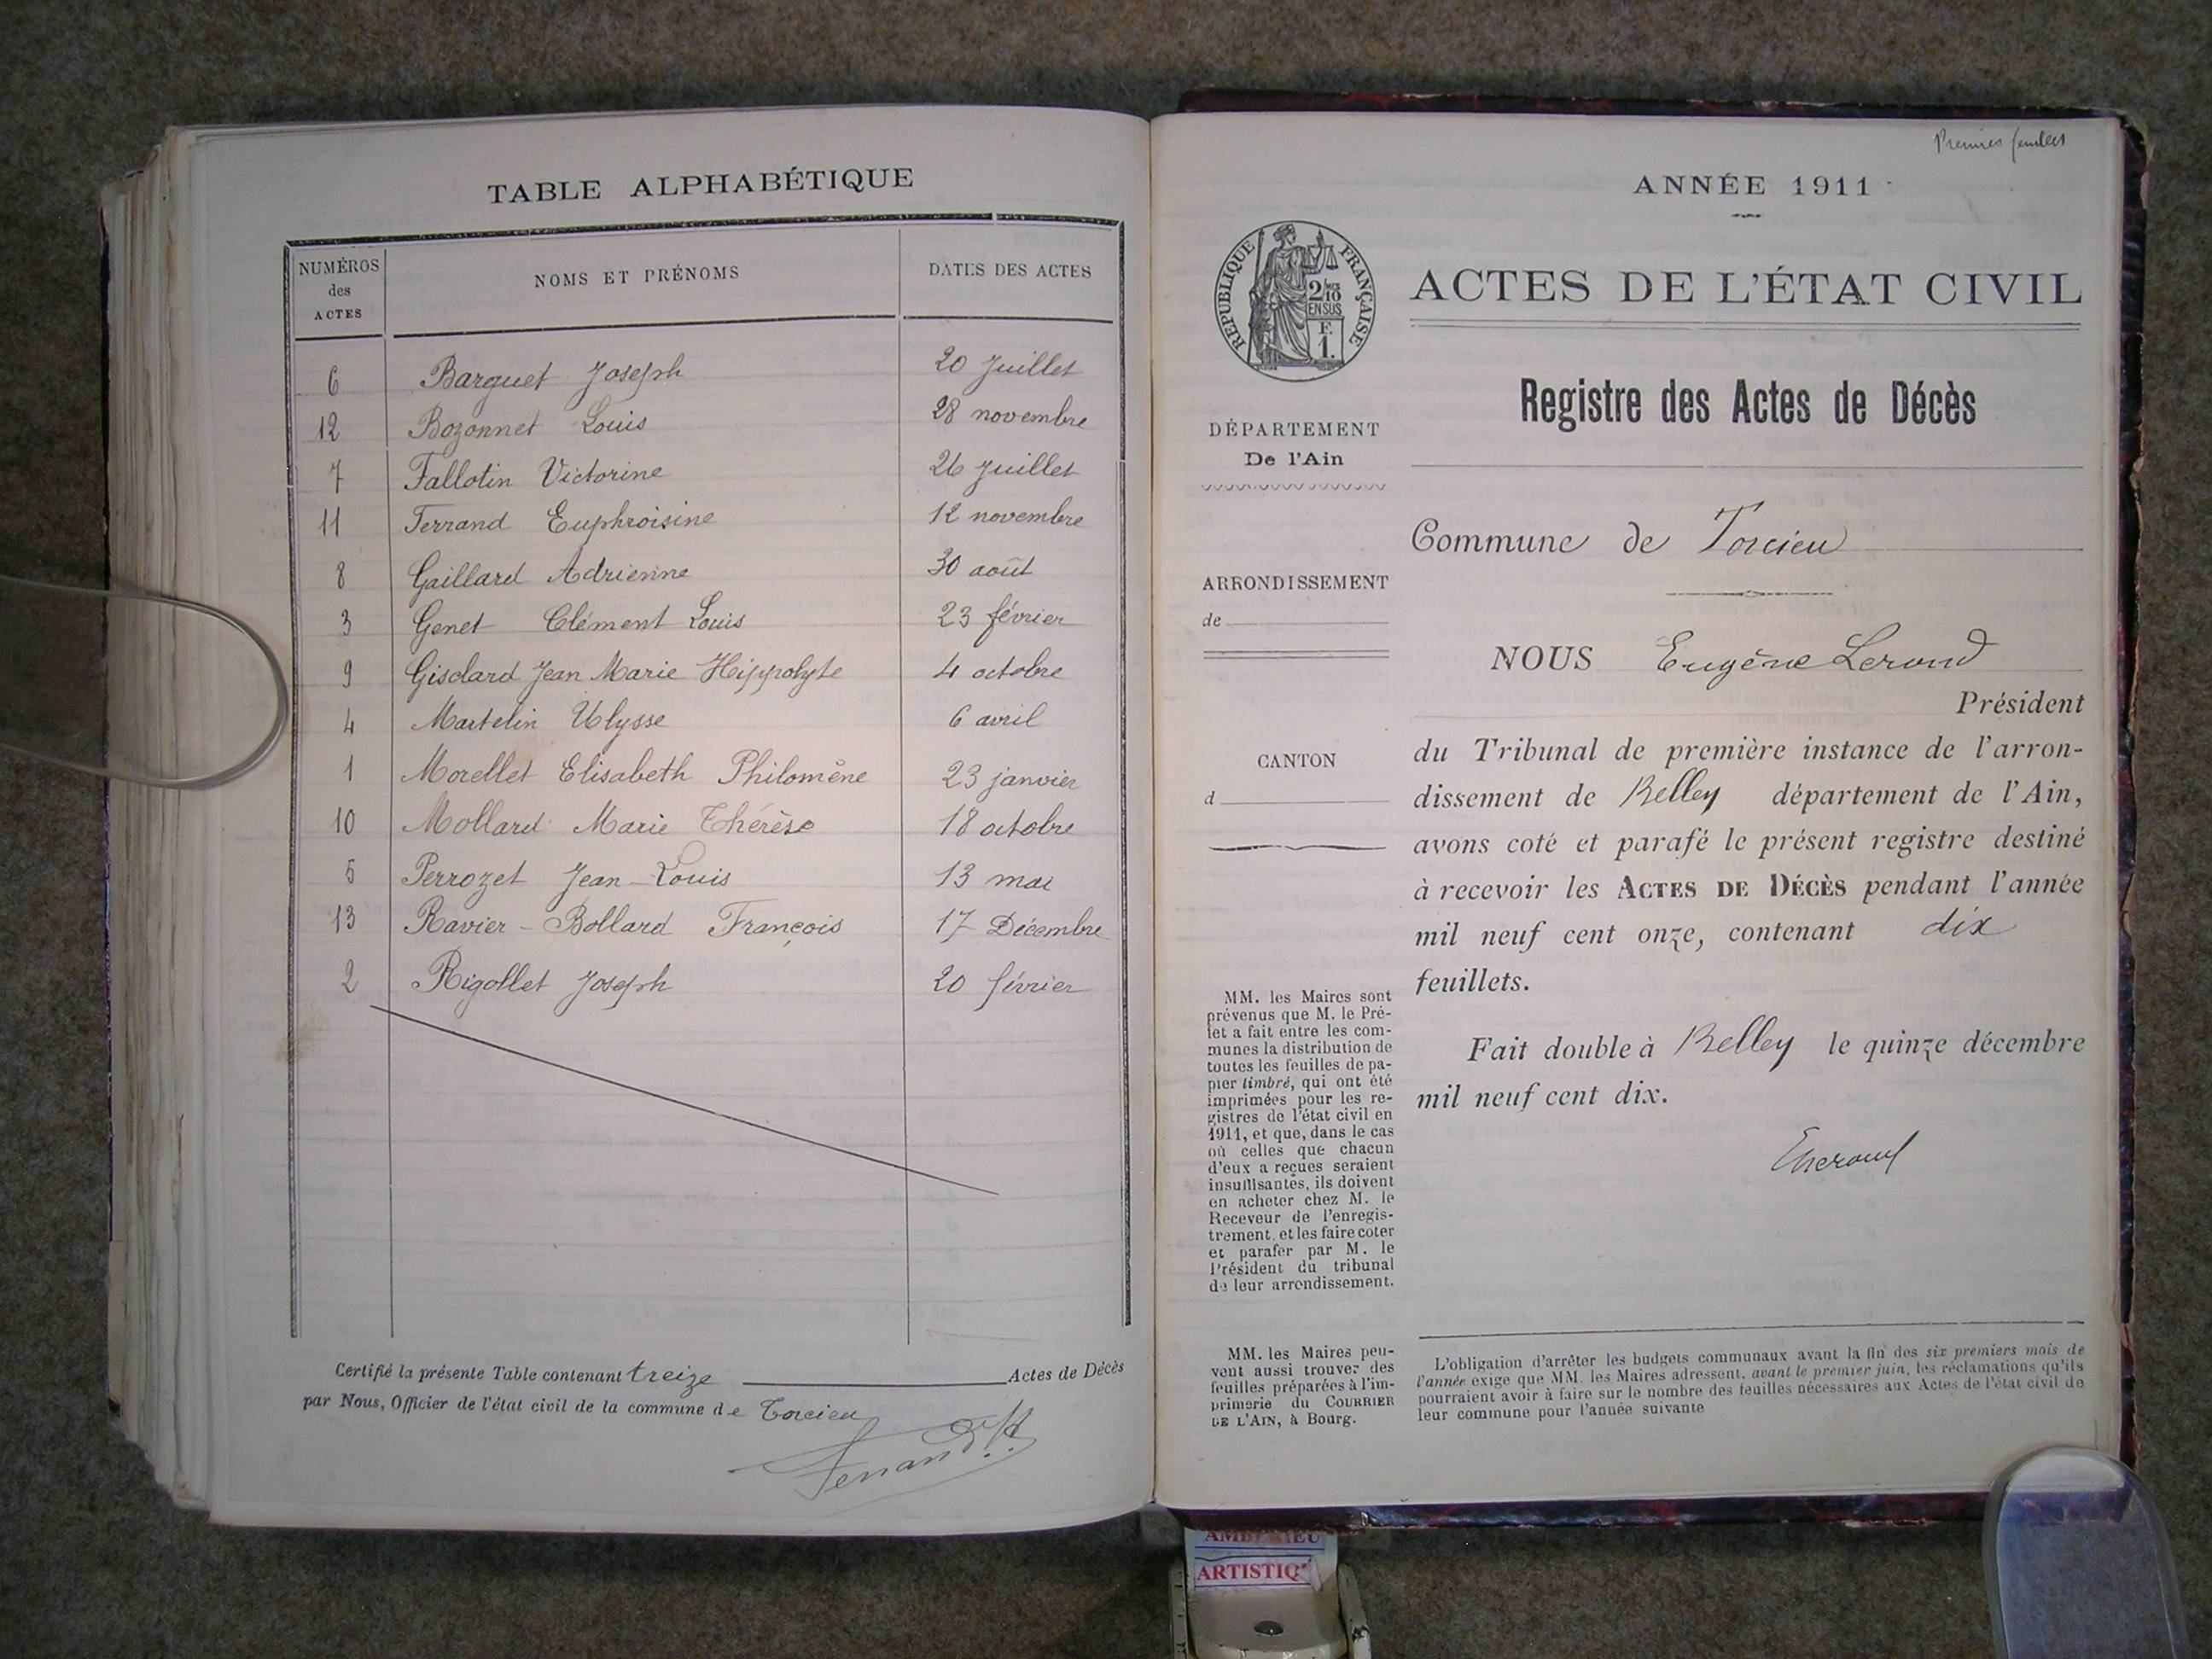 TABLE ALPHABÉTIQUE
NUMÉROS des ACTES NOMS ET PRÉNOMS DATES DES ACTES
6 Barquet Joseph 20 Juillet
12 Bozonnet Louis 28 novembre
7 Fallotin Victorine 26 Juillet
11 Ferrand Euphroisine 12 novembre
8 Gaillard Adrienne 30 août
3 Genet Clément Louis 23 février
9 Gisclard Jean Marie Hippolyte 4 octobre
4 Martelin Ulysse 6 avril
1 Morellet Elisabeth Philomène 23 janvier
10 Mollard Marie Thérèse 18 octobre
5 Perrozet Jean-Louis 13 mai
13 Ravier-Bollard François 17 Décembre
2 Rigollet Joseph 20 février
Certifié la présente Table contenant treize Actes de Décès
par Nous, Officier de l'état civil de la commune de Torcieu
Premier feuillet
ANNÉE 1911
RÉPUBLIQUE FRANÇAISE
2/10
EN SUS
F.
1.
ACTES DE L'ÉTAT CIVIL
Registre des Actes de Décès
DÉPARTEMENT
De l'Ain
ARRONDISSEMENT
de
CANTON
d
MM. les Maires sont
prévenus que M. le Pré-
fet a fait entre les com-
munes la distribution de
toutes les feuilles de pa-
pier timbré, qui ont été
imprimées pour les re-
gistres de l'état civil en
1911, et que, dans le cas
où celles que chacun
d'eux a reçues seraient
insuffisantes, ils doivent
en acheter chez M. le
Receveur de l'enregis-
trement, et les faire coter
et parafer par M. le
Président du tribunal
de leur arrondissement.
MM. les Maires peu-
vent aussi trouver des
feuilles préparées à l'im-
primerie du COURRIER
DE L'AIN, à Bourg.
Commune de Torcieu
NOUS Eugène Lerond
Président
du Tribunal de première instance de l'arron-
dissement de Belley département de l'Ain,
avons coté et parafé le présent registre destiné
à recevoir les ACTES DE DÉCÈS pendant l'année
mil neuf cent onze, contenant dix
feuillets.
Fait double à Belley le quinze décembre
mil neuf cent dix.
L'obligation d'arrêter les budgets communaux avant la fin des six premiers mois de
l'année exige que MM. les Maires adressent, avant le premier juin, les réclamations qu'ils
pourraient avoir à faire sur le nombre des feuilles nécessaires aux Actes de l'état civil de
leur commune pour l'année suivante
AMBERIEU
ARTISTIQ